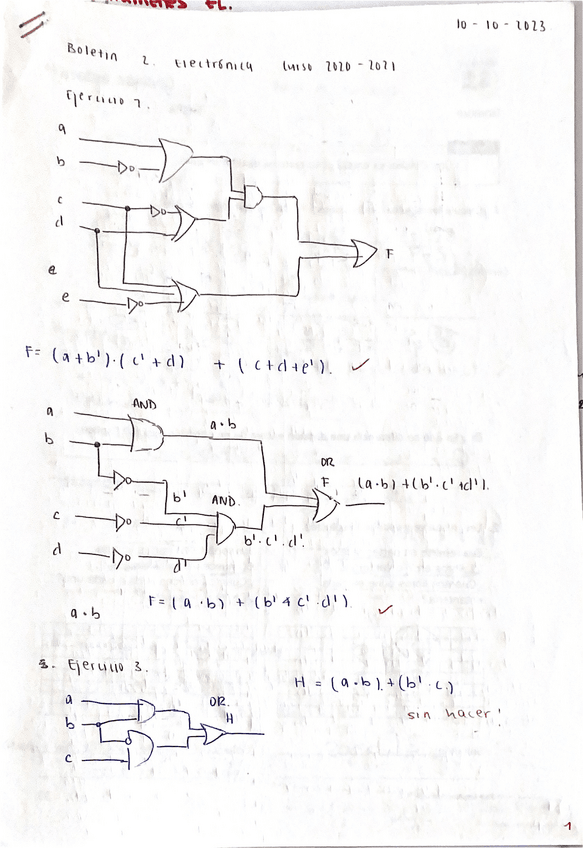 EL.
10 - 10 - 2023
Boletin 2. Electrónica Curso 2020 - 2021
Ejercicio 1.
a
b
c
d
e
e
F
F= (a+b')·(c'+d) + (c+d+e'). ✓
AND
a
a·b
b
OR
F (a·b)+(b'·c'+d').
b' AND.
c c'
b'·c'·d'.
d d'
a·b F=(a·b) + (b' c'·d') ✓
3. Ejercicio 3.
H = (a·b).+(b'·c.)
a
OR.
H
b
sin hacer!
c
1